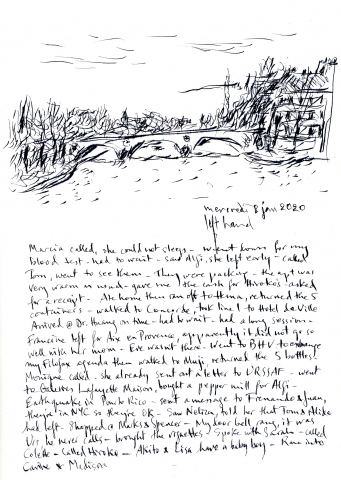 mercredi 8 jan 2020
left hand
Marcia called, she could not sleep - went down for my
blood test - had to wait - saw Algi, she left early - called
Tom, went to see them - They were packing - the apt was
very warm as usual - gave me the cash for Hiroko's - asked
for a receipt - At home then on off to Hema, returned the 5
containers - walked to Concorde, took line 1 to Hotel de Ville
Arrived @ Dr. Huang on time - had to wait - had a long session -
Francine left for Aix en Provence, apparently it did not go so
well with her mom - Eve wasn't there - Went to BHV to exchange
my Filofax agenda then walked to Muji, returned the 5 bottles!
Monique called - she already sent out a letter to URSSAF - went
to Galeries Lafayette Maison, bought a pepper mill for Algi -
Earthquake in Puerto Rico - sent a message to Fernando & Juan,
they're in NYC so they're OK - Saw Nelica, told her that Tom & Akiko
had left. Shopped @ Marks & Spencer - My door bell rang, it was
Urs, he never calls - brought the vignettes - Spoke with Sarah - called
Colette - Called Hiroko - Akito & Lisa have a baby boy - Ran into
Carine & Melison